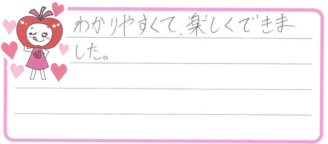 わかりやすくて、楽しくできま
した。